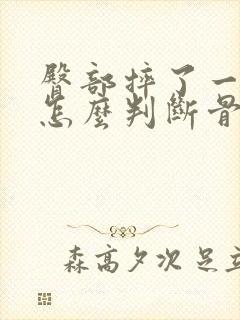 臀部摔了一
怎麼判斷骨
森高夕次 足立